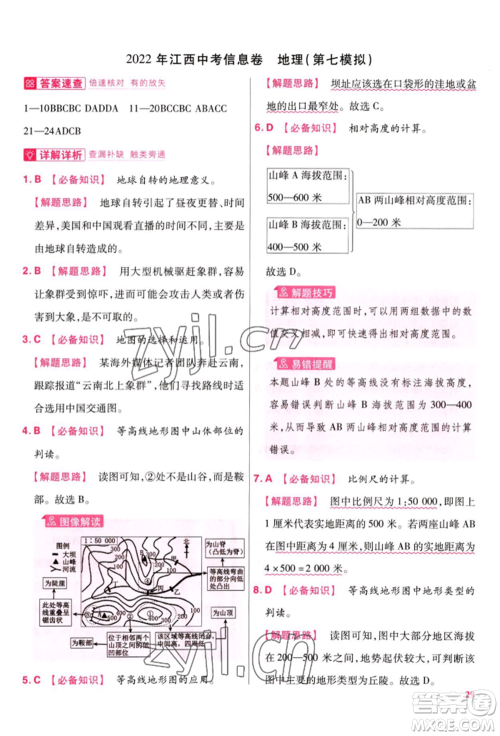 2022 年江西中考信息卷 地理(第七模拟)
答案速查 倍速核对 有的放矢
1—10BBCBC DADDA 11—20BCBBC ABACC
21—24ADCB
详解详析 查漏补缺 触类旁通
1. B 【必备知识】 地球自转的地理意义。
【解题思路】 地球自转引起了昼夜更替、时间差异,美国和中国观看直播的时间不同,主要是由地球自转造成的。
2. B 【解题思路】 用大型机械驱赶象群,容易让象群受到惊吓,并进一步对当地居民造成更大伤害。故选 B。
3. C 【必备知识】 地图的选择与运用。
【解题思路】 某海外媒体记者团队奔赴云南,跟踪报道“云南北上象群”,他们寻找路线时应使用中国交通图。
4. B 【必备知识】 等高线地形图中山体部位的判读。
【解题思路】 读图可知,②处不是山谷,而是鞍部。故选 B。
图像解读
1∶50 000
图例
大坝
山峰
河流
北
为山脊
(凸低为脊)
为陡崖
此处等高线重叠呈锯齿状
为鞍部
位于相邻两个山顶之间
该区域等高线闭合,数值中高周低
为山顶
5. C 【必备知识】 等高线地形图的应用。
【解题思路】 坝址应该选在口袋形的洼地或盆地的出口最窄处。故选 C。
6. D 【必备知识】 相对高度的计算。
【解题思路】
山峰 A 海拔范围:
500—600 米
山峰 B 海拔范围:
400—500 米
AB 两山峰相对高度范围:
0—200 米
故选 D。
解题技巧
计算相对高度范围时,可以用两组数据中的数值交叉相减,得出数值范围。
易错提醒
本题山峰 B 处的等高线没有标注数据,学生容易错误判断山峰 B 的海拔范围,从而导致计算错误。
7. A 【必备知识】 比例尺的计算。
【解题思路】 图中比例尺为 1∶50 000,即图上距离1厘米代表实地距离500米。若两座山峰的图上距离为4厘米,则实地距离约为4×500=2 000 米。
8. D 【必备知识】 等高线地形图中地形类型的判读。
【解题思路】 读图可知,图中大部分海拔在200—500 米,地势起伏较大,可判断该地区图中主要的地形类型为丘陵。故选 D。
zyjl.cn